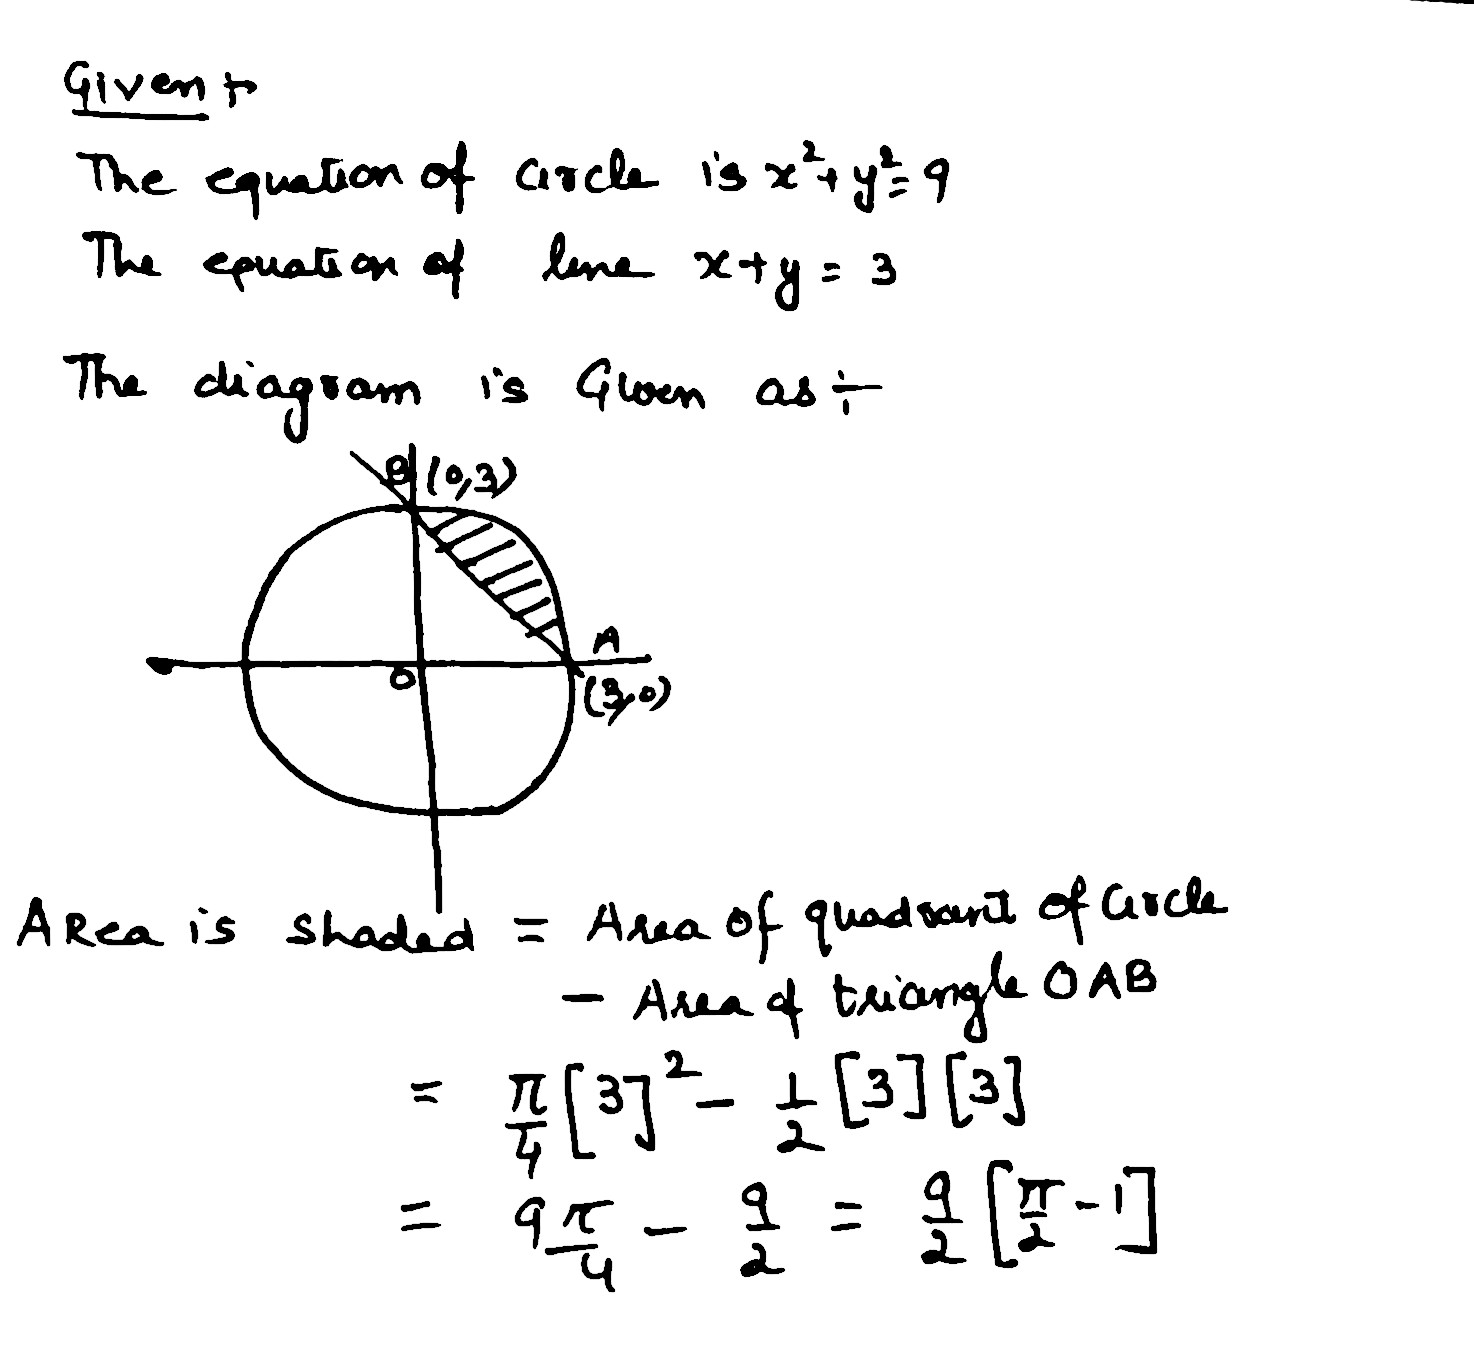 Given :-
The equation of circle is x²+y²=9
The equation of line x+y=3
The diagram is Given as :-
B (0,3)
A
O
(3,0)
Area is shaded = Area of quadrant of circle
- Area of triangle OAB
= π/4 [3]² - 1/2 [3][3]
= 9π/4 - 9/2 = 9/2 [π/2 - 1]